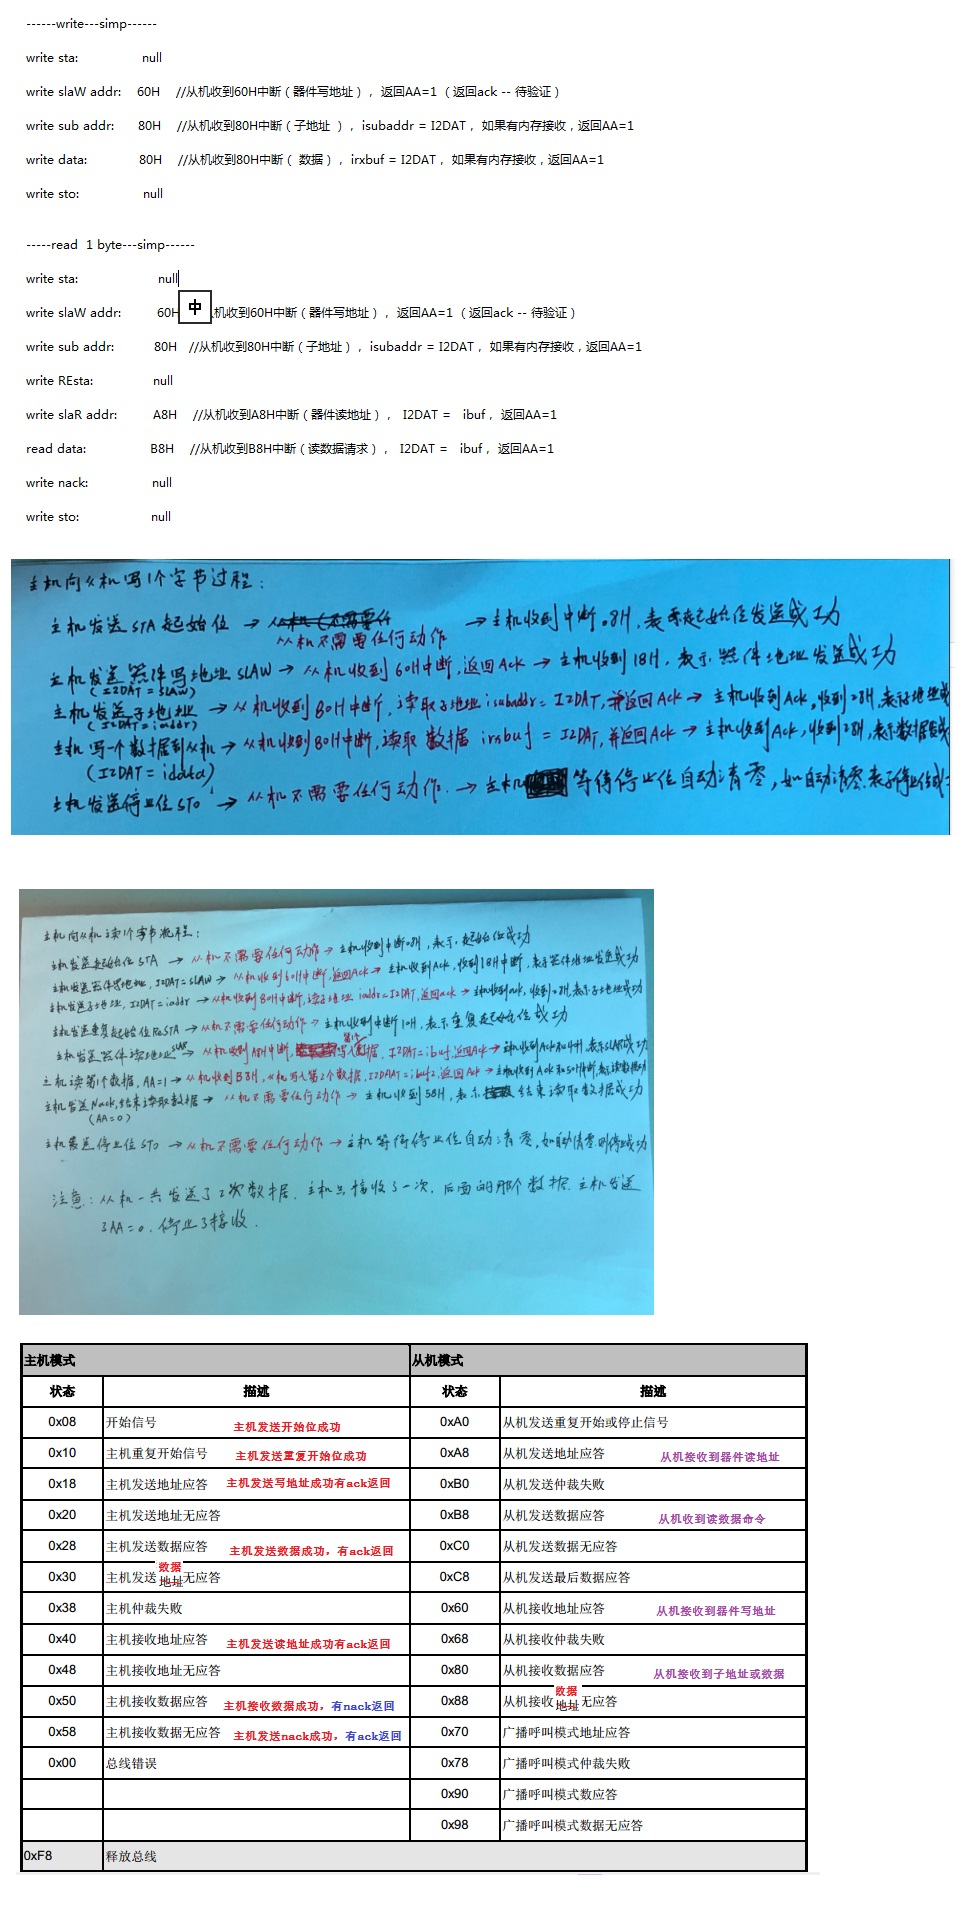 ------write---simp------
write sta: null
write slaW addr: 60H //从机收到60H中断（器件写地址），返回AA=1（返回ack -- 待验证）
write sub addr: 80H //从机收到80H中断（子地址 ），isubaddr = I2DAT，如果有内存接收，返回AA=1
write data: 80H //从机收到80H中断（ 数据），irxbuf = I2DAT，如果有内存接收，返回AA=1
write sto: null
-----read 1 byte---simp------
write sta: null
中
write slaW addr: 60H 机收到60H中断（器件写地址），返回AA=1（返回ack -- 待验证）
write sub addr: 80H //从机收到80H中断（子地址），isubaddr = I2DAT，如果有内存接收，返回AA=1
write REsta: null
write slaR addr: A8H //从机收到A8H中断（器件读地址）， I2DAT = ibuf，返回AA=1
read data: B8H //从机收到B8H中断（读数据请求）， I2DAT = ibuf，返回AA=1
write nack: null
write sto: null
主机向从机写1个字节过程：
主机发送STA起始位 → 从机不需要任何动作 → 主机收到中断08H，表示起始位发送成功
主机发送器件写地址SLAW → 从机收到60H中断，返回Ack → 主机收到18H，表示器件地址发送成功
(I2DAT = SLAW)
主机发送子地址 → 从机收到80H中断，读取子地址isubaddr = I2DAT，并返回Ack → 主机收到Ack，收到28H，表示子地址成
(I2DAT = iaddr)
主机写一个数据到从机 → 从机收到80H中断，读取数据irxbuf = I2DAT，并返回Ack → 主机收到Ack，收到28H，表示数据
(I2DAT = idata)
主机发送停止位STO → 从机不需要任何动作 → 主机等待停止位自动清零，如自动清零表示停止位成
主机向从机读1个字节流程：
主机发送起始位STA → 从机不需要任何动作 → 主机收到中断08H，表示起始位成功
主机发送器件写地址，I2DAT=SLAW → 从机收到60H中断，返回Ack → 主机收到Ack，收到18H中断，表示器件地址发送成功
主机发送子地址，I2DAT=iaddr → 从机收到80H中断，读子地址iaddr=I2DAT，返回ack → 主机收到ack，收到28H，表示子地址成功
主机发送重复起始位ReSTA → 从机不需要任何动作 → 主机收到中断10H，表示重复起始位成功
主机发送器件读地址SLAR → 从机收到A8H中断，写入第1个数据，I2DAT=ibuf，返回Ack → 主机收到Ack和40H，表示SLAR成功
主机读第1个数据，AA=1 → 从机收到B8H，从机写入第2个数据，I2DAT=ibuf2，返回Ack → 主机收到Ack和50H中断，表示读数据成功
主机发送Nack，结束读取数据 → 从机不需要任何动作 → 主机收到58H，表示结束读取数据成功
(AA=0)
主机发送停止位STO → 从机不需要任何动作 → 主机等待停止位自动清零，如自动清零则停止成功
注意：从机一共发送了2次数据，主机只接收了一次，后面的那个数据，主机发送
了AA=0，停止了接收．
主机模式 从机模式
状态 描述 状态 描述
0x08 开始信号 主机发送开始位成功 0xA0 从机发送重复开始或停止信号
0x10 主机重复开始信号 主机发送重复开始位成功 0xA8 从机发送地址应答 从机接收到器件读地址
0x18 主机发送地址应答 主机发送写地址成功有ack返回 0xB0 从机发送仲裁失败
0x20 主机发送地址无应答 0xB8 从机发送数据应答 从机收到读数据命令
0x28 主机发送数据应答 主机发送数据成功，有ack返回 0xC0 从机发送数据无应答
数据
0x30 主机发送地址无应答 0xC8 从机发送最后数据应答
0x38 主机仲裁失败 0x60 从机接收地址应答 从机接收到器件写地址
0x40 主机接收地址应答 主机发送读地址成功有ack返回 0x68 从机接收仲裁失败
0x48 主机接收地址无应答 0x80 从机接收数据应答 从机接收到子地址或数据
数据
0x50 主机接收数据应答 主机接收数据成功，有nack返回 0x88 从机接收地址无应答
0x58 主机接收数据无应答 主机发送nack成功，有ack返回 0x70 广播呼叫模式地址应答
0x00 总线错误 0x78 广播呼叫模式仲裁失败
0x90 广播呼叫模式数应答
0x98 广播呼叫模式数据无应答
0xF8 释放总线